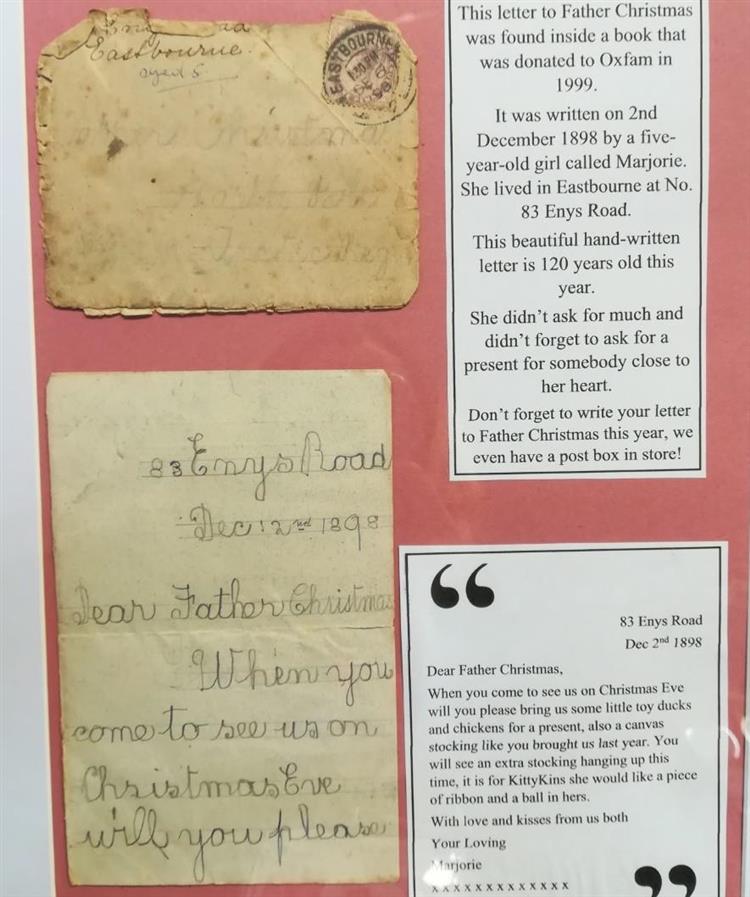 Eastbourne.
aged 5
EASTBOURNE
Christmas
North Pole
This letter to Father Christmas
was found inside a book that
was donated to Oxfam in
1999.
It was written on 2nd
December 1898 by a five-
year-old girl called Marjorie.
She lived in Eastbourne at No.
83 Enys Road.
This beautiful hand-written
letter is 120 years old this
year.
She didn't ask for much and
didn't forget to ask for a
present for somebody close to
her heart.
Don't forget to write your letter
to Father Christmas this year, we
even have a post box in store!
83 Enys Road
Dec: 2nd 1898
Dear Father Christmas
When you
come to see us on
Christmas Eve
will you please
“
83 Enys Road
Dec 2nd 1898
Dear Father Christmas,
When you come to see us on Christmas Eve
will you please bring us some little toy ducks
and chickens for a present, also a canvas
stocking like you brought us last year. You
will see an extra stocking hanging up this
time, it is for KittyKins she would like a piece
of ribbon and a ball in hers.
With love and kisses from us both
Your Loving
Marjorie
x x x x x x x x x x x x x
”